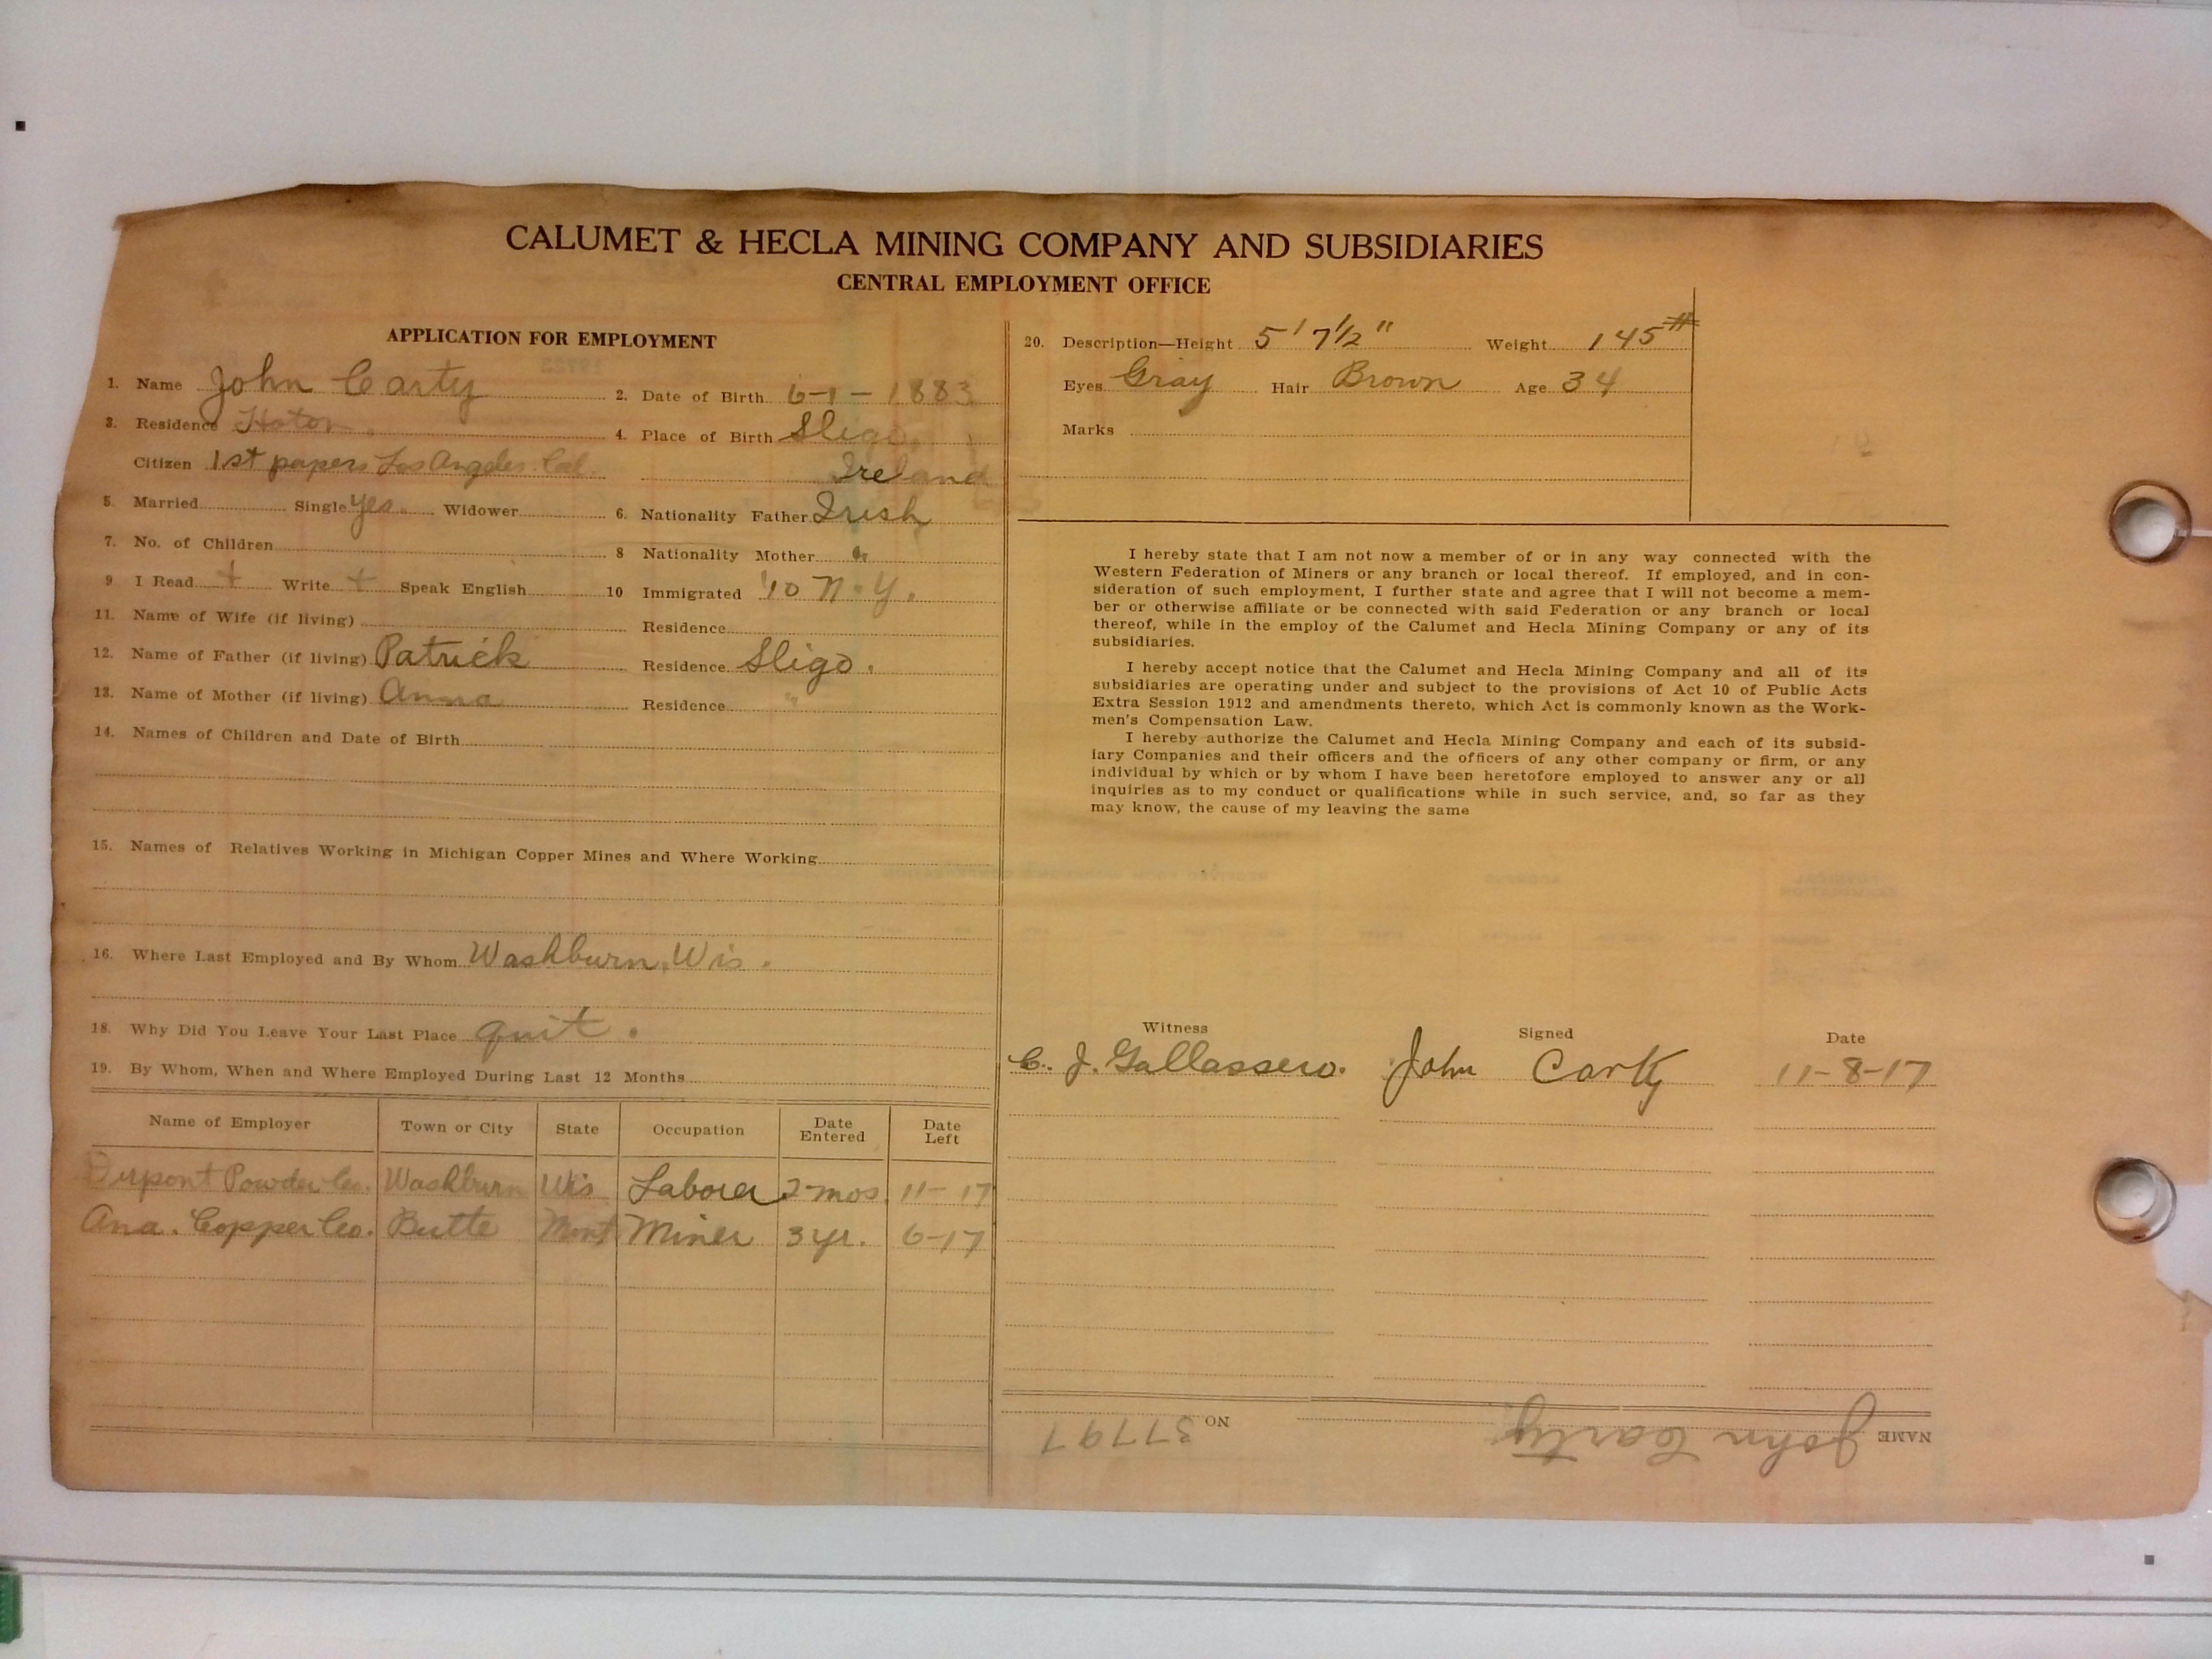 CALUMET & HECLA MINING COMPANY AND SUBSIDIARIES
CENTRAL EMPLOYMENT OFFICE
APPLICATION FOR EMPLOYMENT
1. Name John Carty 2. Date of Birth 6-1-1883
3. Residence 4. Place of Birth Sligo,
Citizen 1st papers Los Angeles Cal. Ireland
5. Married Single Yes. Widower 6. Nationality Father Irish
7. No. of Children 8 Nationality Mother "
9 I Read + Write + Speak English 10 Immigrated '10 N.Y.
11. Name of Wife (if living) Residence
12. Name of Father (if living) Patrick Residence Sligo.
13. Name of Mother (if living) Anna Residence "
14. Names of Children and Date of Birth
15. Names of Relatives Working in Michigan Copper Mines and Where Working
16. Where Last Employed and By Whom Washburn, Wis.
18. Why Did You Leave Your Last Place quit.
19. By Whom, When and Where Employed During Last 12 Months
Name of Employer Town or City State Occupation Date Entered Date Left
Dupont Powder Co. Washburn Wis Laborer 2 mos. 11-17
Ana. Copper Co. Butte Mont Miner 3 yr. 6-17
20. Description—Height 5' 7½" Weight 145#
Eyes Gray Hair Brown Age 34
Marks
I hereby state that I am not now a member of or in any way connected with the
Western Federation of Miners or any branch or local thereof. If employed, and in con-
sideration of such employment, I further state and agree that I will not become a mem-
ber or otherwise affiliate or be connected with said Federation or any branch or local
thereof, while in the employ of the Calumet and Hecla Mining Company or any of its
subsidiaries.
I hereby accept notice that the Calumet and Hecla Mining Company and all of its
subsidiaries are operating under and subject to the provisions of Act 10 of Public Acts
Extra Session 1912 and amendments thereto, which Act is commonly known as the Work-
men's Compensation Law.
I hereby authorize the Calumet and Hecla Mining Company and each of its subsid-
iary Companies and their officers and the officers of any other company or firm, or any
individual by which or by whom I have been heretofore employed to answer any or all
inquiries as to my conduct or qualifications while in such service, and, so far as they
may know, the cause of my leaving the same
Witness Signed Date
C. J. Gallassero. John Carty 11-8-17
NAME John Carty. NO 37797